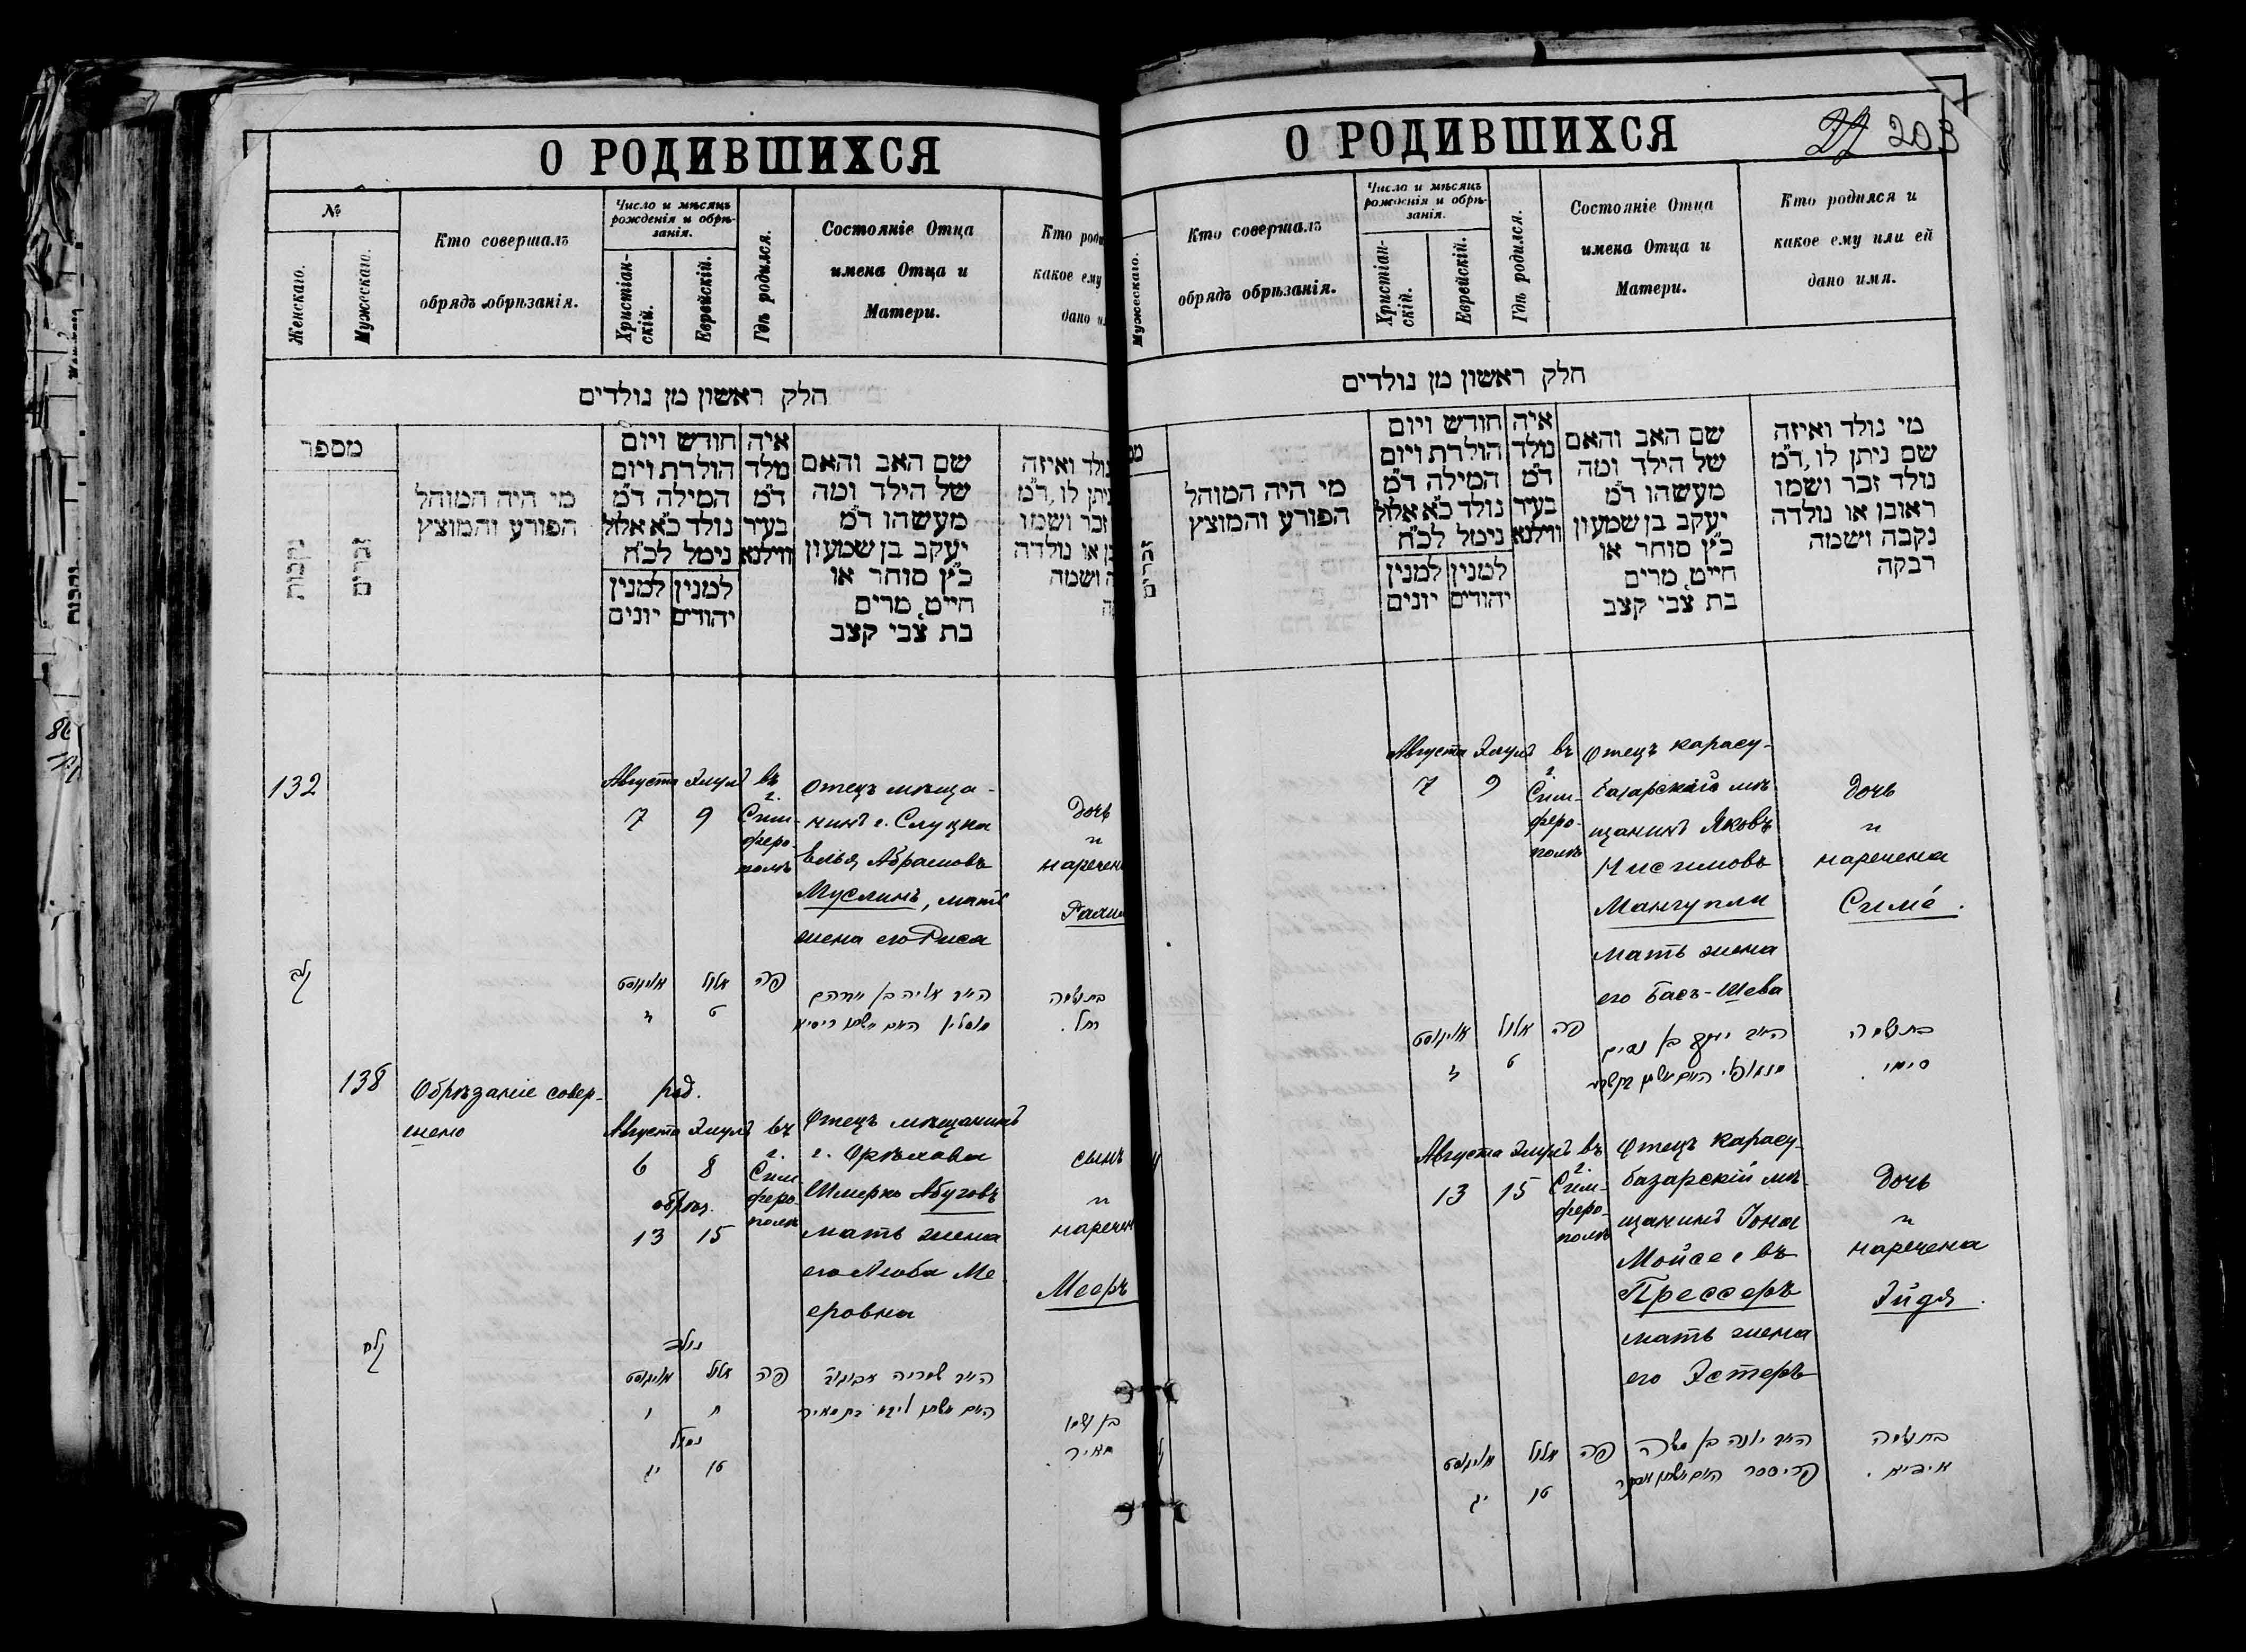 О РОДИВШИХСЯ
№
Женскаго.
Мужескаго.
Кто совершалъ
обрядъ обрѣзанія.
Число и мѣсяцъ
рожденія и обрѣ-
занія.
Христіан-
скій.
Еврейскій.
Гдѣ родился.
Состояніе Отца
имена Отца и
Матери.
Кто
какое ему
дано
חלק ראשון מן נולדים
מספר
נקבות
זכרים
מי היה המוהל
הפורע והמוצץ
חודש ויום
הולדת ויום
המילה ד״מ
נולד כ״א אלול
נימל לכ״ח
למנין יהודים
למנין יונים
איה
נולד
ד״מ
בעיר
ווילנא
שם האב והאם
של הילד ומה
מעשהו ד״מ
יעקב בן שמעון
כ״ץ סוחר או
חייט, מרים
בת צבי קצב
נולד ואיזה
ניתן לו, ד״מ
זכר ושמו
או נולדה
ושמה
132
Августа Элулъ
7 9
въ
г.
Сим-
феро-
полѣ
Отецъ мѣща-
нинъ г. Слуцка
Элья Абрамовъ
Муслинъ, мать
жена его Риса
Дочь
и
קלב
אויגוסט אלול פה
ז ט
האב אליה בן אברהם
מוסלין האם אשתו ריסיא
בת ושמה
רחל.
138
Обрѣзаніе совер-
шено
род.
Августа Элулъ
6 8
обрѣз.
13 15
въ
г.
Сим-
феро-
полѣ
Отецъ мѣщанинъ
г. Орѣхова
Шмерко Абуговъ
мать жена
его Люба Ме-
еровна
сынъ
и
Мееръ
קלח
נולד
אויגוסט אלול פה
ו ח
נימול
יג טו
האב שמריה אבוגוב
האם אשתו ליבא בת מאיר
בן ושמו
מאיר.
О РОДИВШИХСЯ
203
Мужескаго.
Кто совершалъ
обрядъ обрѣзанія.
Число и мѣсяцъ
рожденія и обрѣ-
занія.
Христіан-
скій.
Еврейскій.
Гдѣ родился.
Состояніе Отца
имена Отца и
Матери.
Кто родился и
какое ему или ей
дано имя.
חלק ראשון מן נולדים
זכרים
מי היה המוהל
הפורע והמוצץ
חודש ויום
הולדת ויום
המילה ד״מ
נולד כ״א אלול
נימל לכ״ח
למנין יהודים
למנין יונים
איה
נולד
ד״מ
בעיר
ווילנא
שם האב והאם
של הילד ומה
מעשהו ד״מ
יעקב בן שמעון
כ״ץ סוחר או
חייט, מרים
בת צבי קצב
מי נולד ואיזה
שם ניתן לו, ד״מ
נולד זכר ושמו
ראובן או נולדה
נקבה ושמה
רבקה
Августа Элулъ
7 9
въ
г.
Сим-
феро-
полѣ
Отецъ карасу-
базарскій мѣ-
щанинъ Яковъ
Нисимовъ
Мангупли
мать жена
его Басъ-Шева
Дочь
и
наречена
Симе.
אויגוסט אלול פה
ז ט
האב יעקב בן נסים
מנגופלי האם אשתו בת שבע
בת ושמה
סימי.
Августа Элулъ
13 15
въ
г.
Сим-
феро-
полѣ
Отецъ карасу-
базарскій мѣ-
щанинъ Іона
Мойсеевъ
Прессеръ
мать жена
его Эстеръ
Дочь
и
наречена
Эйдя.
אויגוסט אלול פה
יג טו
האב יונה בן משה
פריססר האם אשתו אסתר
בת ושמה